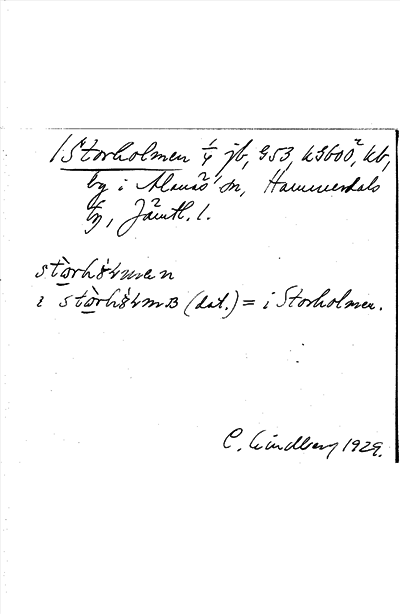 Storholmen 1/4 jb, G53, k3600², kb,
by i Alanäs sn, Hammerdals
tg, Jämtl. l.
stòrhòɫmen
i stòrhòɫmв (dat.) = i Storholmen.
C. Lindberg 1929.